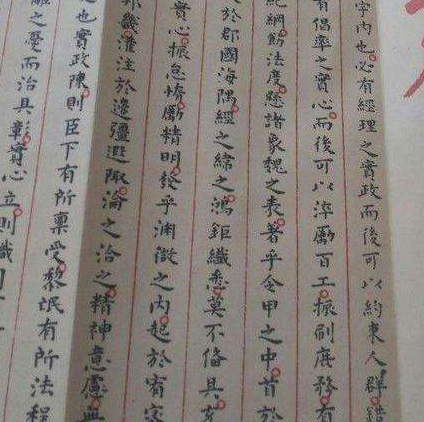 宇內也必有經理之實政而後可以約束人群錯
有倡率之實心而後可以淬勵百工振刷庶務有
紀綱飭法度懸諸象魏之表著乎令甲之中首於
於郡國海隅經之緯之鴻鉅纖悉莫不偹具充
實心振怠惰勵精明發乎淵微之內起於宥密
邦畿灌注於邊疆遐陬淪之洽之精神意慮無
也實政陳則臣下有所稟受黎氓有所法程
離之憂而治具彰實心立則職司